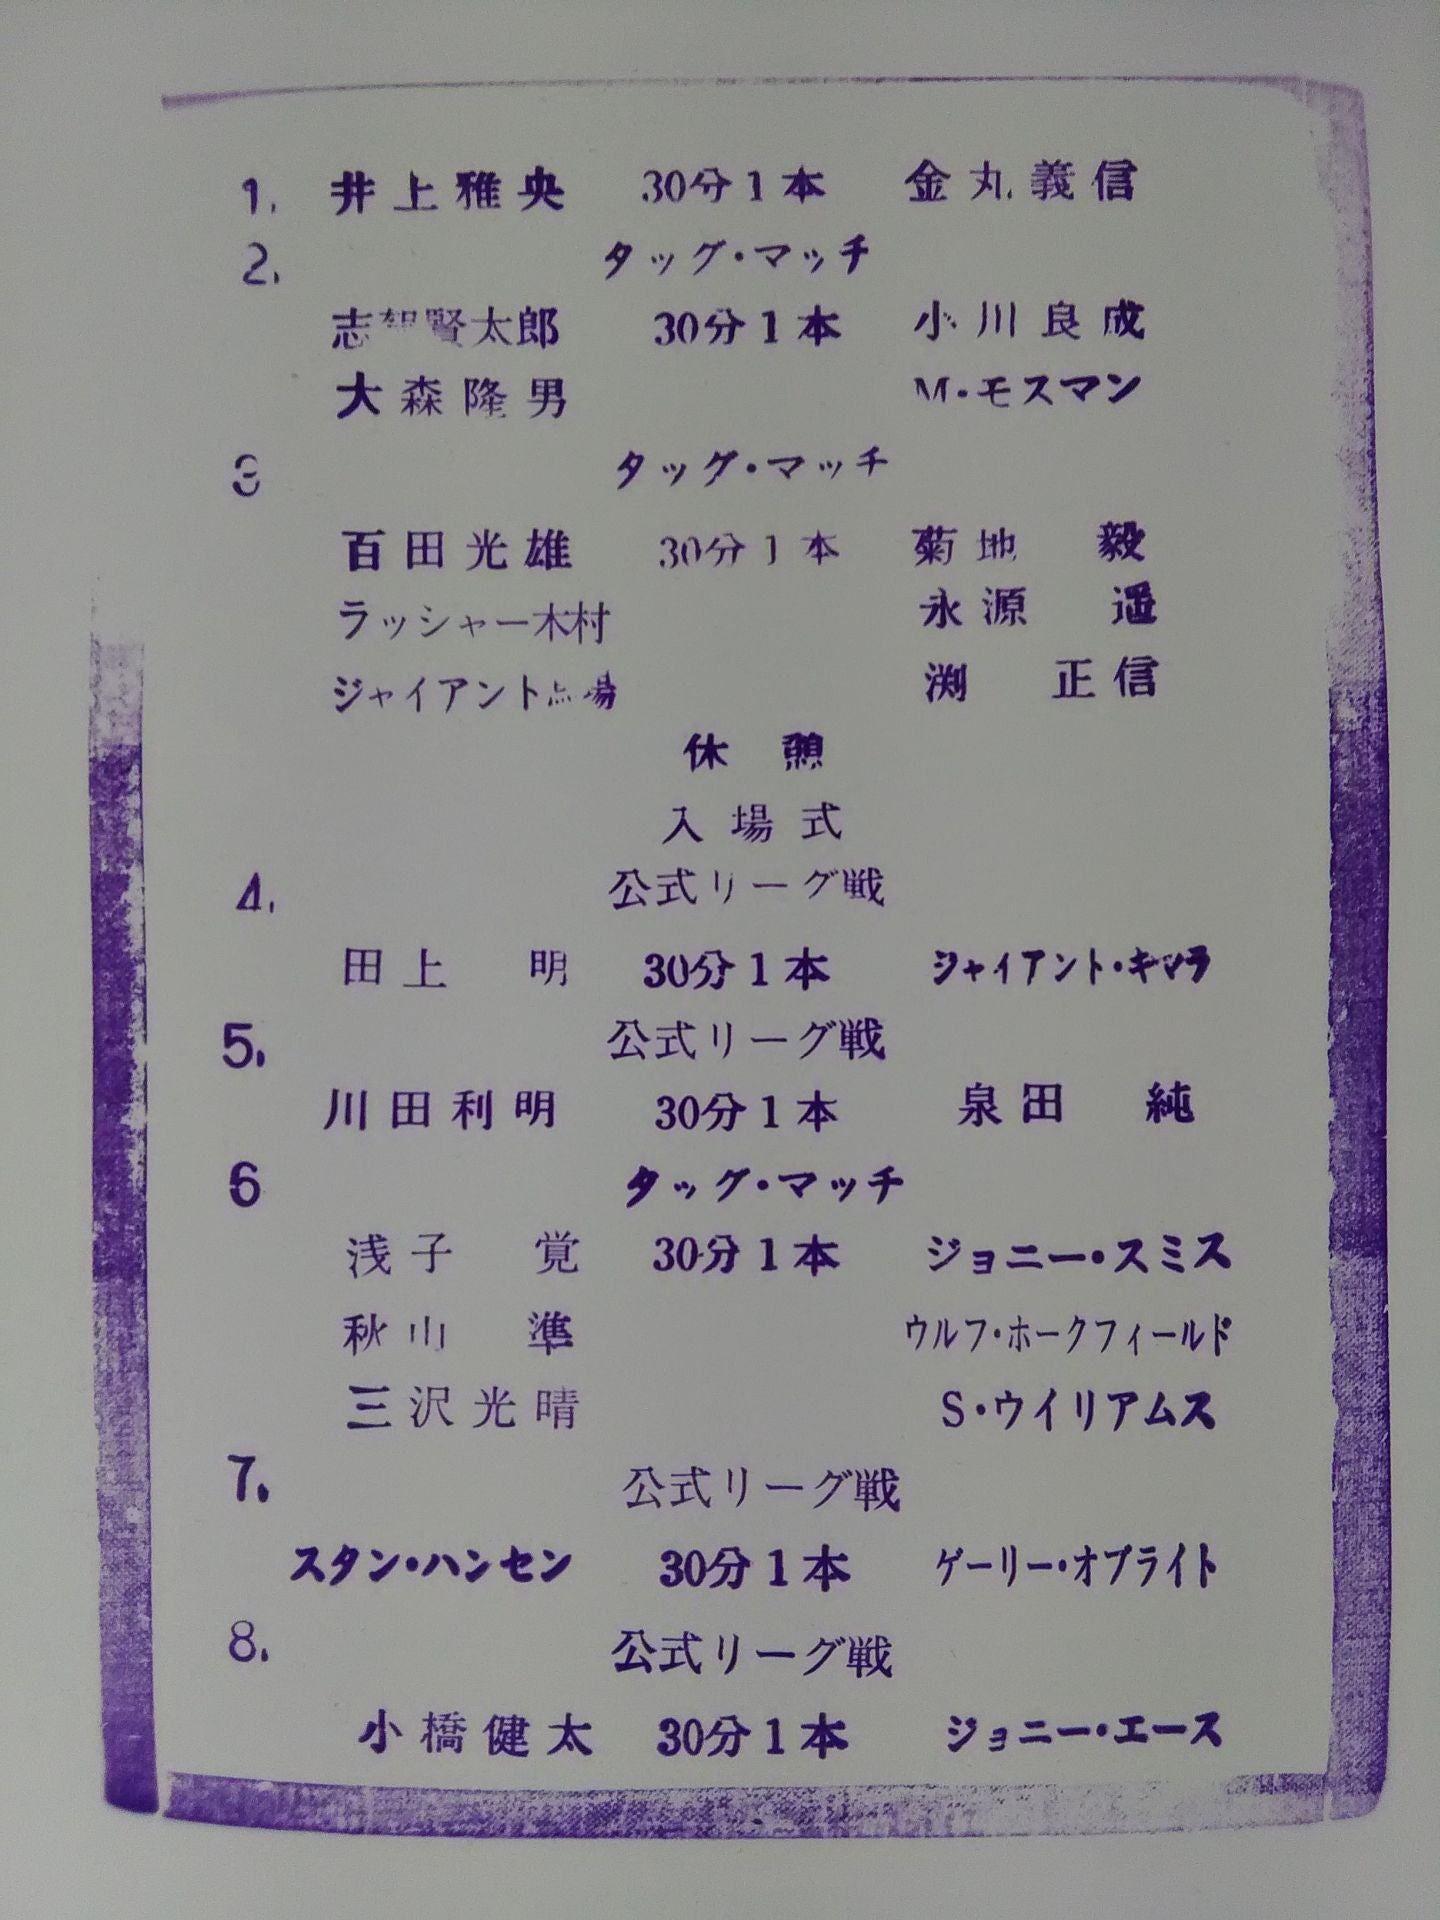 1. 井上雅央 30分1本 金丸義信
2. タッグ・マッチ
志賀賢太郎 30分1本 小川良成
大森隆男 M・モスマン
3 タッグ・マッチ
百田光雄 30分1本 菊地 毅
ラッシャー木村 永源 遥
ジャイアント馬場 渕 正信
休憩
入場式
4. 公式リーグ戦
田上 明 30分1本 ジャイアント・キマラ
5. 公式リーグ戦
川田利明 30分1本 泉田 純
6 タッグ・マッチ
浅子 覚 30分1本 ジョニー・スミス
秋山 準 ウルフ・ホークフィールド
三沢光晴 S・ウイリアムス
7. 公式リーグ戦
スタン・ハンセン 30分1本 ゲーリー・オブライト
8. 公式リーグ戦
小橋健太 30分1本 ジョニー・エース